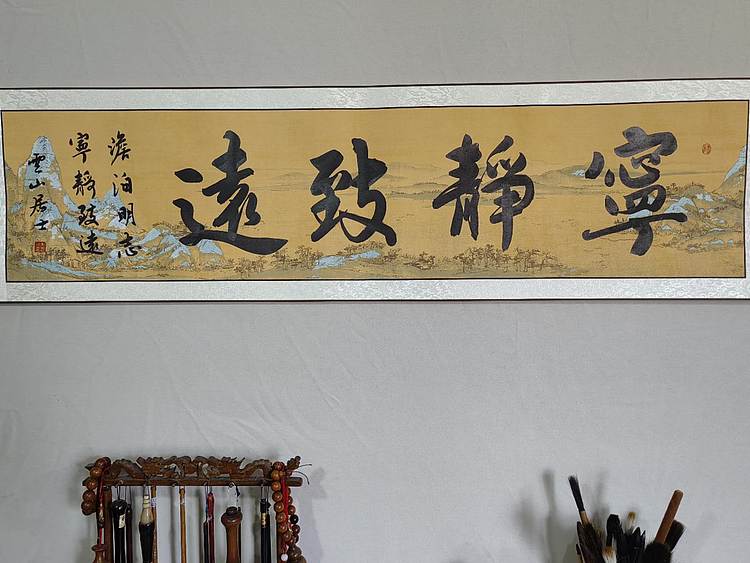 寧靜致遠
澹泊明志
寧靜致遠
雲山居士